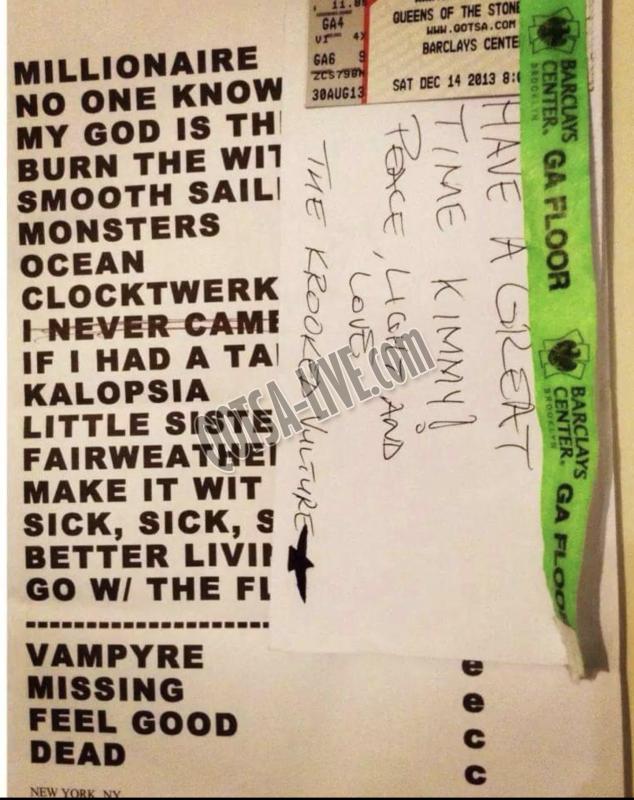 MILLIONAIRE
NO ONE KNOW
MY GOD IS TH
BURN THE WIT
SMOOTH SAIL
MONSTERS
OCEAN
CLOCKTWERK
I NEVER CAME
IF I HAD A TA
KALOPSIA
LITTLE SISTE
FAIRWEATHE
MAKE IT WIT
SICK, SICK, S
BETTER LIVI
GO W/ THE FL
VAMPYRE
MISSING
FEEL GOOD
DEAD
e
e
c
c
NEW YORK, NY
GA4
GA6 9
ZCS798N
30AUG13
QUEENS OF THE STONE
WWW.QOTSA.COM
BARCLAYS CENTE
SAT DEC 14 2013 8:
HAVE A GREAT
TIME KIMMY!
PEACE, LIGHT AND
LOVE,
THE KROOKED VULTURE
BARCLAYS
CENTER.
BROOKLYN
GA FLOOR
BARCLAYS
CENTER.
BROOKLYN
GA FLOOR
QOTSA-LIVE.com